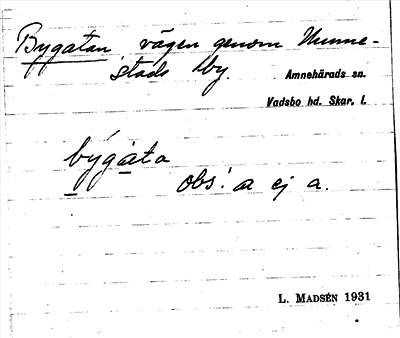 Bygatan, vägen genom Nunne-
stads by.
Amnehärads sn.
Vadsbo hd. Skar. l.
býga̠ta
obs! a ej a.
L. MADSÉN 1931